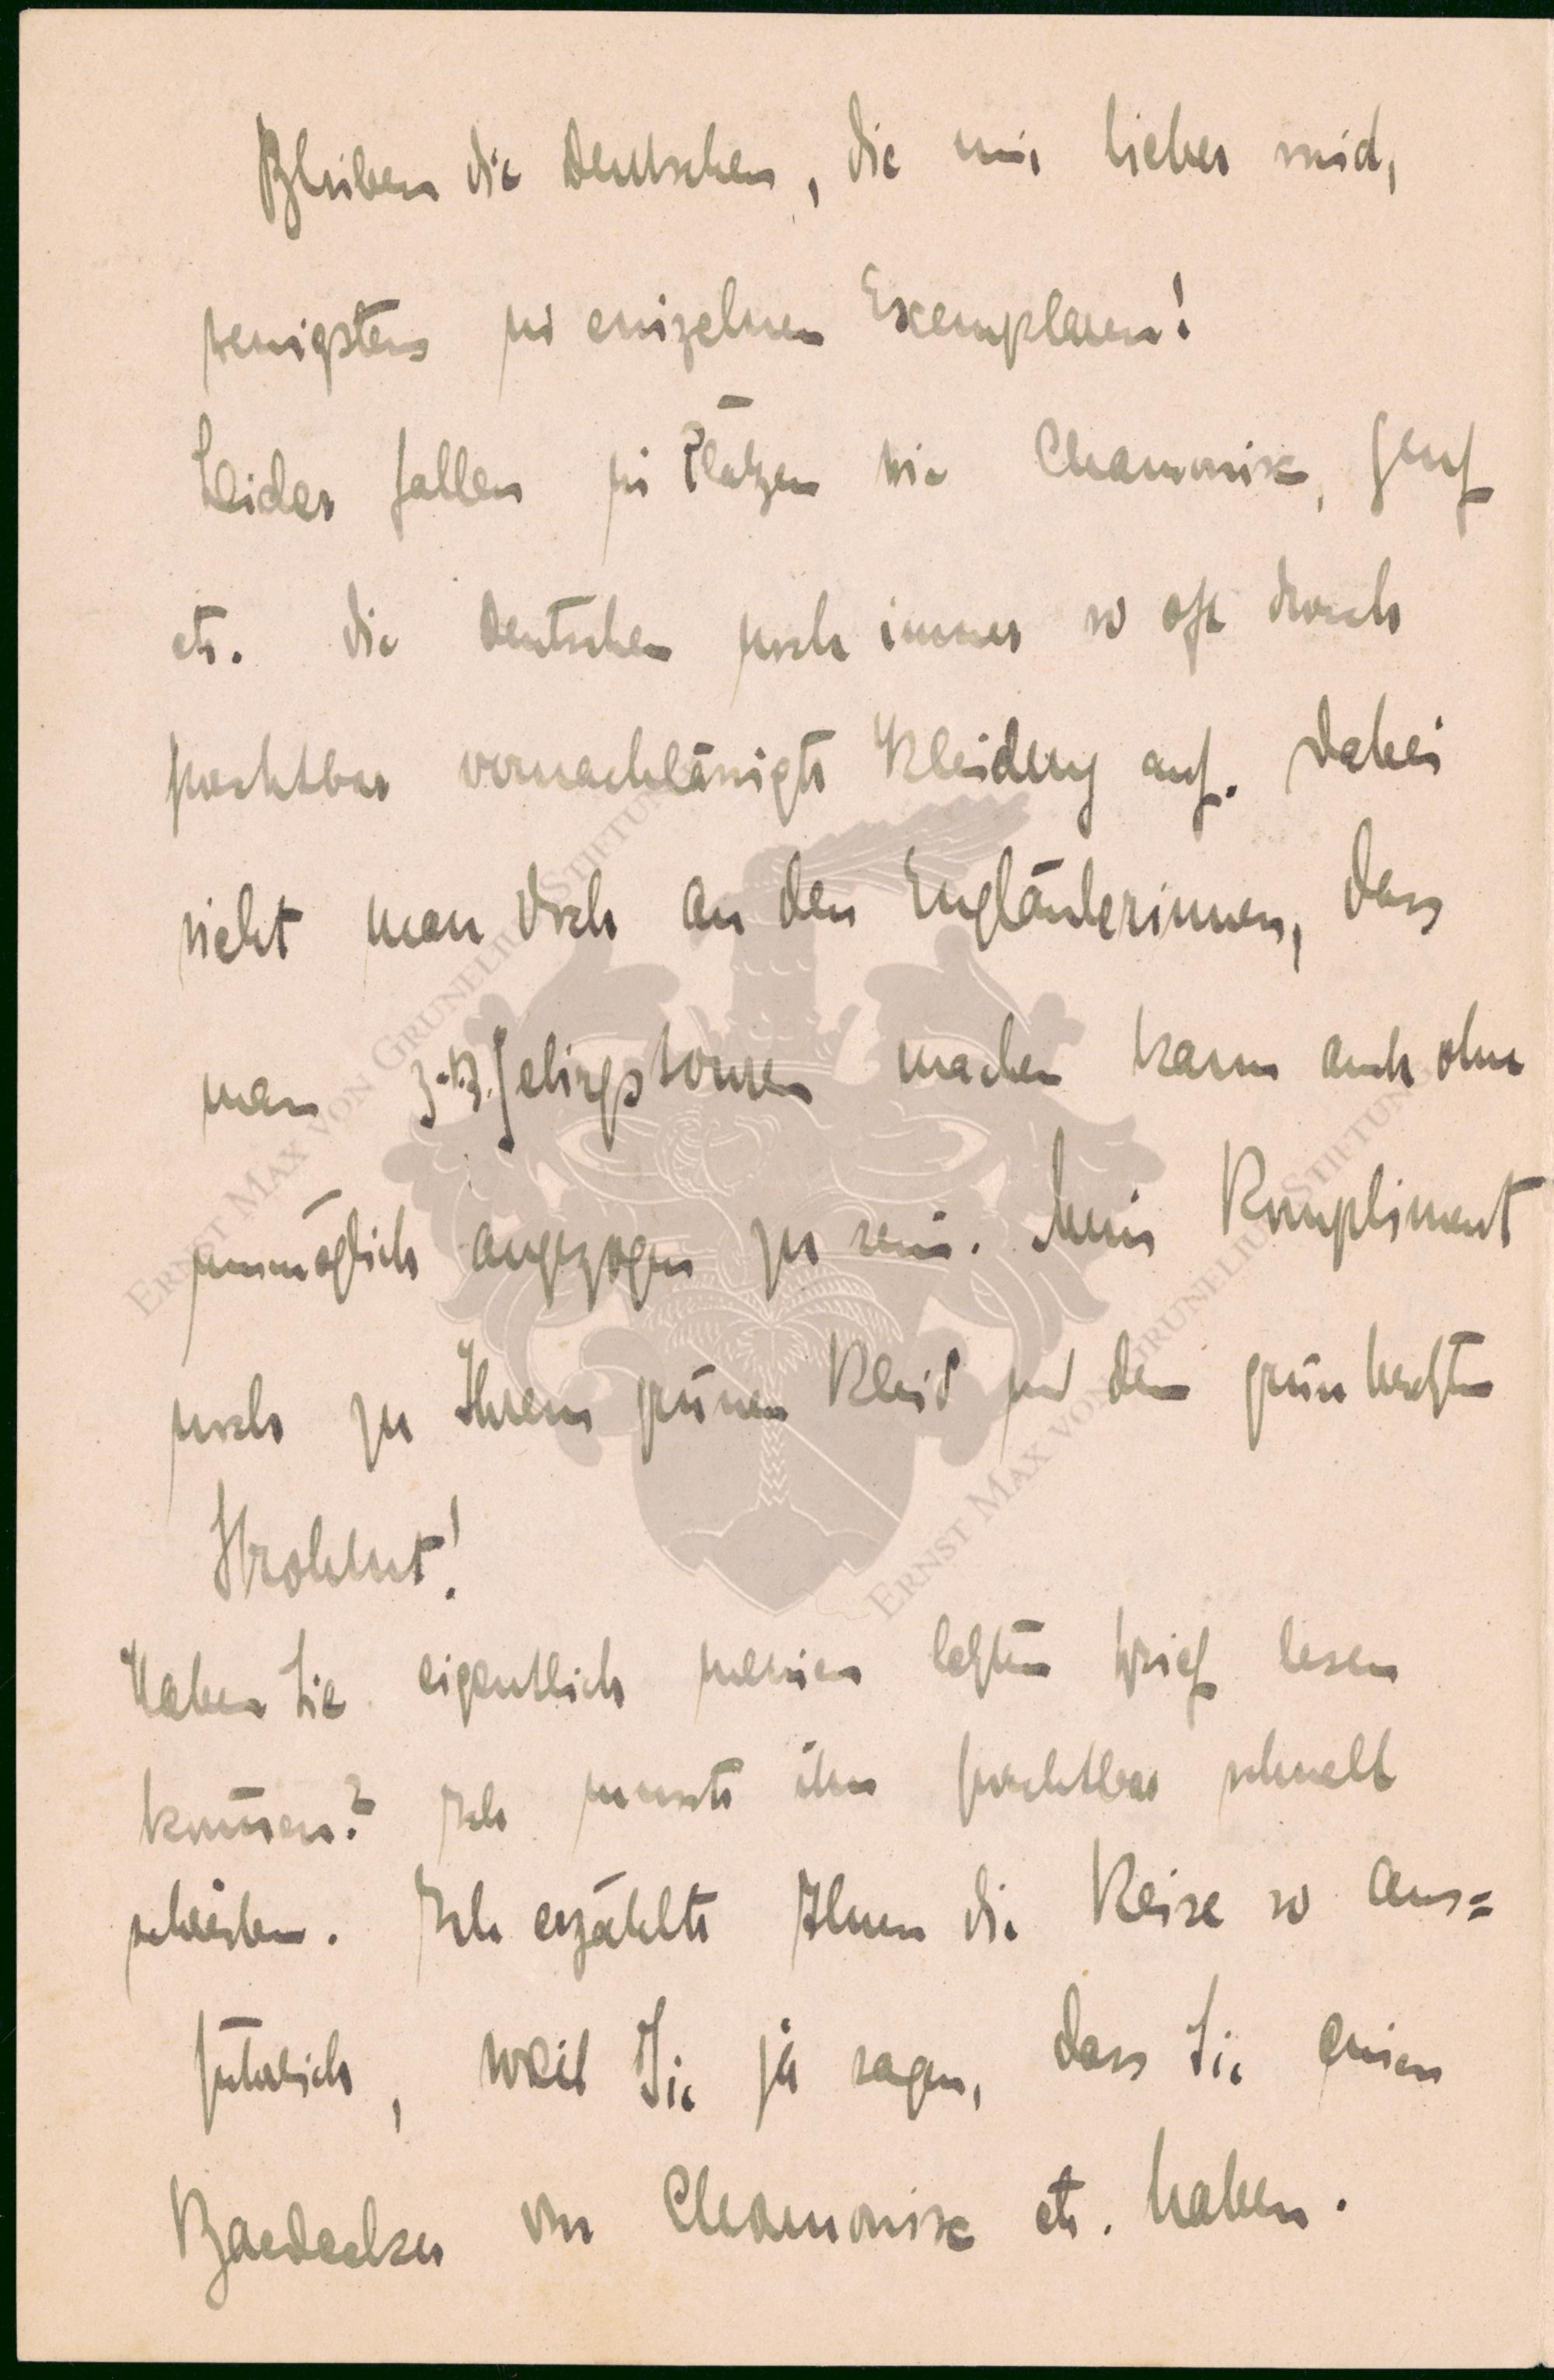 Bleiben die Deutschen, die mir lieber sind,
wenigstens in einzelnen Exemplaren!
Leider fallen in Plätzen wie Chamonix, Genf
etc. die Deutschen noch immer so oft durch
furchtbar vernachlässigte Kleidung auf. Dabei
sieht man doch an den Engländerinnen, dass
man z.B. Gebirgstouren machen kann auch ohne
unmöglich angezogen zu sein. Mein Kompliment
noch zu Ihrem grünen Kleid und dem grün
Strohhut!
Haben Sie eigentlich meinen letzten Brief lesen
können? Ich musste ihn furchtbar schnell
schreiben. Ich erzählte Ihnen die Reise so aus=
führlich, weil Sie ja sagen, dass Sie einen
Baedecker von Chamonix etc. haben.
ERNST MAX VON GRUNELIUS STIFTUNG
ERNST MAX VON GRUNELIUS STIFTUNG